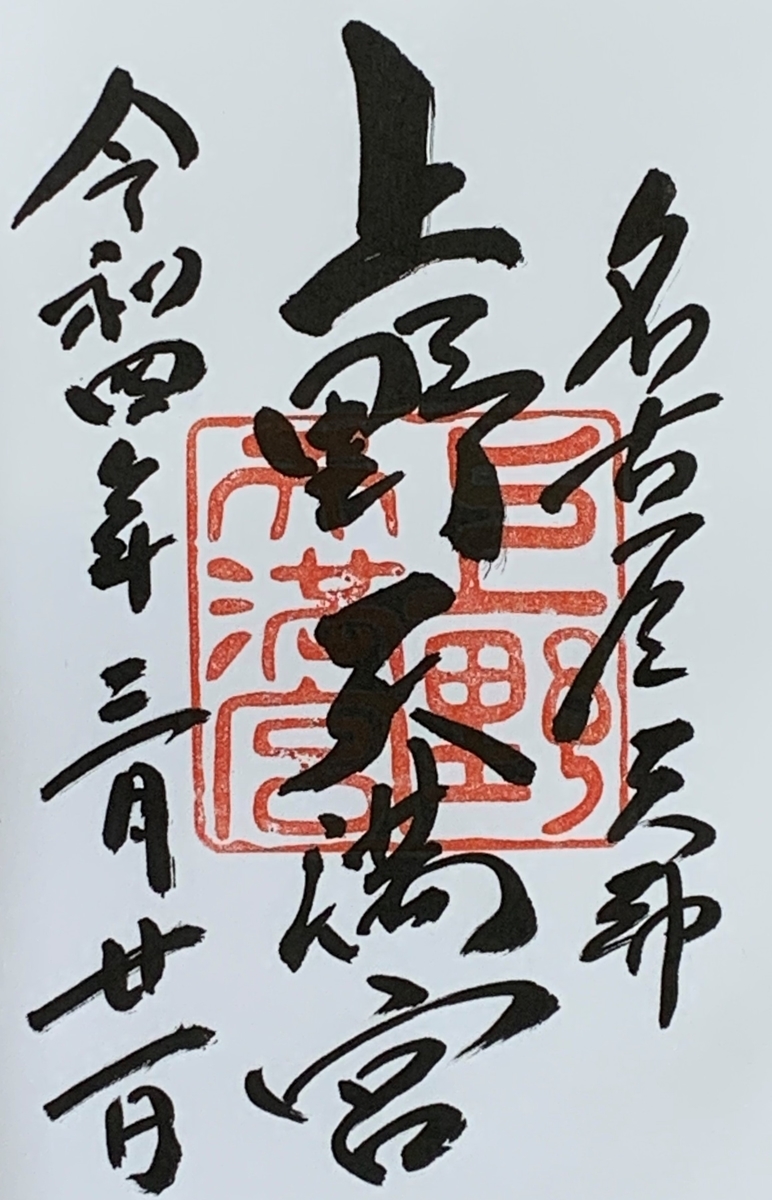 名古屋天神
上野天満宮
令和四年三月廿一日
上野
天満宮